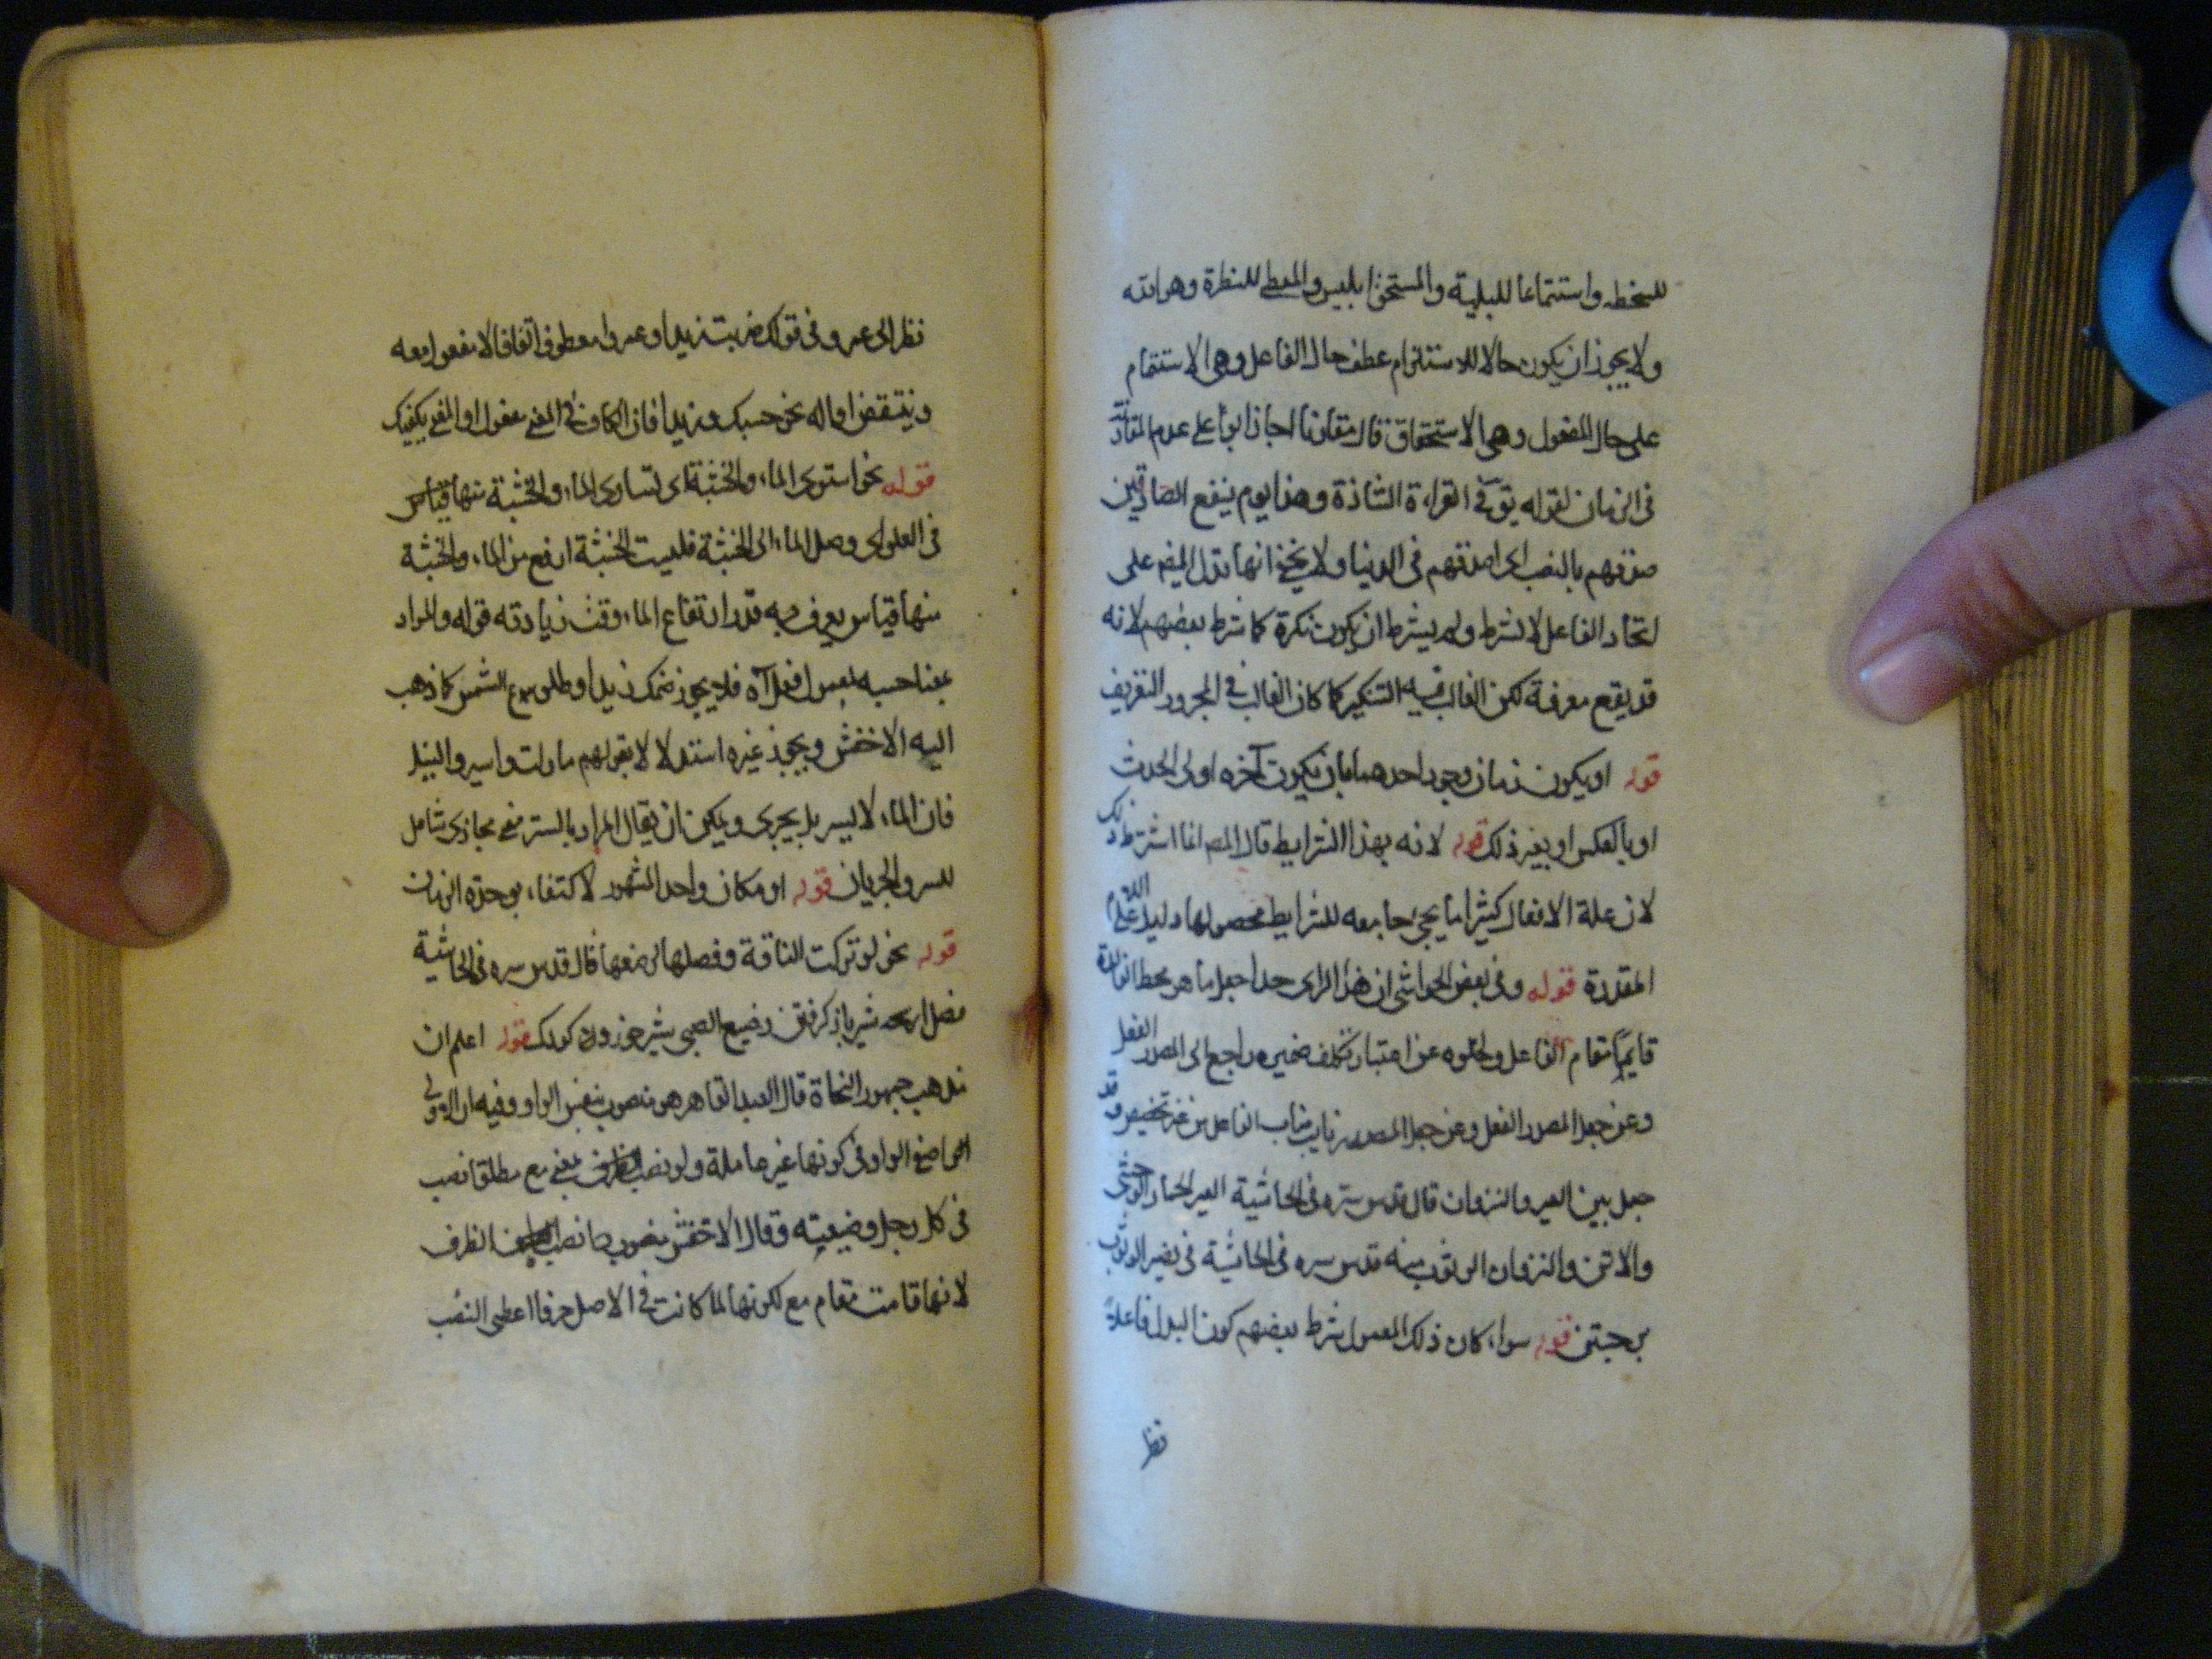 للسخطه واستتماما للبلية والمستحق ابليس والمعطى للنظرة وهو الله
ولا يجوز ان يكون حالا للاستلزام عطف حال الفاعل وهي الاستتمام
على حال المفعول وهي الاستحقاق قال مقارنا اجاز ابو على عدم المقارنة
فى الزمان لقوله تع فى القراءة الشاذة وهذا يوم ينفع الصادقين
صدقهم بالنصب اى لصدقهم فى الدنيا ولا يخفى انها تدل ايضا على
اتحاد الفاعل لا لشرط ولم يشرط ان يكون نكرة كما شرط بعضهم لانه
قد يقع معرفة لكن الغالب فيه التنكير كما كان الغالب فى المجرور التعريف
قوله او يكون زمان وجود احدهما بان يكون آخره اولى الحدث
او بالعكس او بغير ذلك قوله لانه بهذا الشرايط قال المص انما اشترط ذلك
لان علة الافعال كثيرا ما يجئ جامعه للشرايط فحصولها دليل على اللام
المقدرة قوله وفى بعض الحواشى ان هذا الراى جدا جعل ما هو محط الفائدة
قايما مقام الفاعل وخلوه عن اعتبار تكلف ضمير راجع الى المصدر الفعل
وعن جعل المصدر الفعل وعن جعل المصدر نايب مناب الفاعل من غير تخصيص وقد
حيل بين العير والنزوان قال قدس سره فى الحاشية العير الحمار الوحشى
والاتن والنزوان الوثوب منه قدس سره فى الحاشية فى تفسير الوثوب
برجستن قوله سواء كان ذلك المعمول شرط بعضهم كون البدل فاعلا
نظر
نظرا الى عمرو فى قولك ضربت زيدا وعمروا معطوف اتفاقا لا مفعول معه
وينتقض اوله نحو حسبك وزيدا فان الكاف فى المعنى مفعول اذ المعنى يكفيك
قوله نحو استوى الماء والخشبة اى تساوى الماء والخشبة منها قياس
فى العلو اى وصل الماء الى الخشبة فليست الخشبة ارفع من الماء والخشبة
منها قياس يعرف به قدر ارتفاع الماء وقت زيادته قوله والمراد
بمصاحبه لمعمول فعل آه فلا يجوز ضحك زيد وطلوع الشمس كما ذهب
اليه الاخفش ويجوز غيره استدلالا بقولهم ما زلت واسير والنيل
فان الماء لا يسير بل يجرى ويمكن ان يقال المراد بالسير معنى مجازى شامل
للسير والجريان قوله او مكان واحد المشهور لاكتفاء بوحدة الزمان
قوله نحو لو تركت الناقة وفصيلها لرضعها قال قدس سره فى الحاشية
فصل از بچه شير باز گرفتن رضيع الصبى شير خوردن كودك قوله اعلم ان
مذهب جمهور النحاة قال العبد القاهر هو منصوب بنفس الواو وفيه ان الاولى
اصالة الواو فى كونها غير عاملة ولو نصب بمعنى مع مطلقا نصب
فى كل رجل وضيعته وقال الاخفش منصوب انتصاب الظرف
لانها قامت مقام مع لكونها لما كانت فى الاصل حرفا اعطى النصب